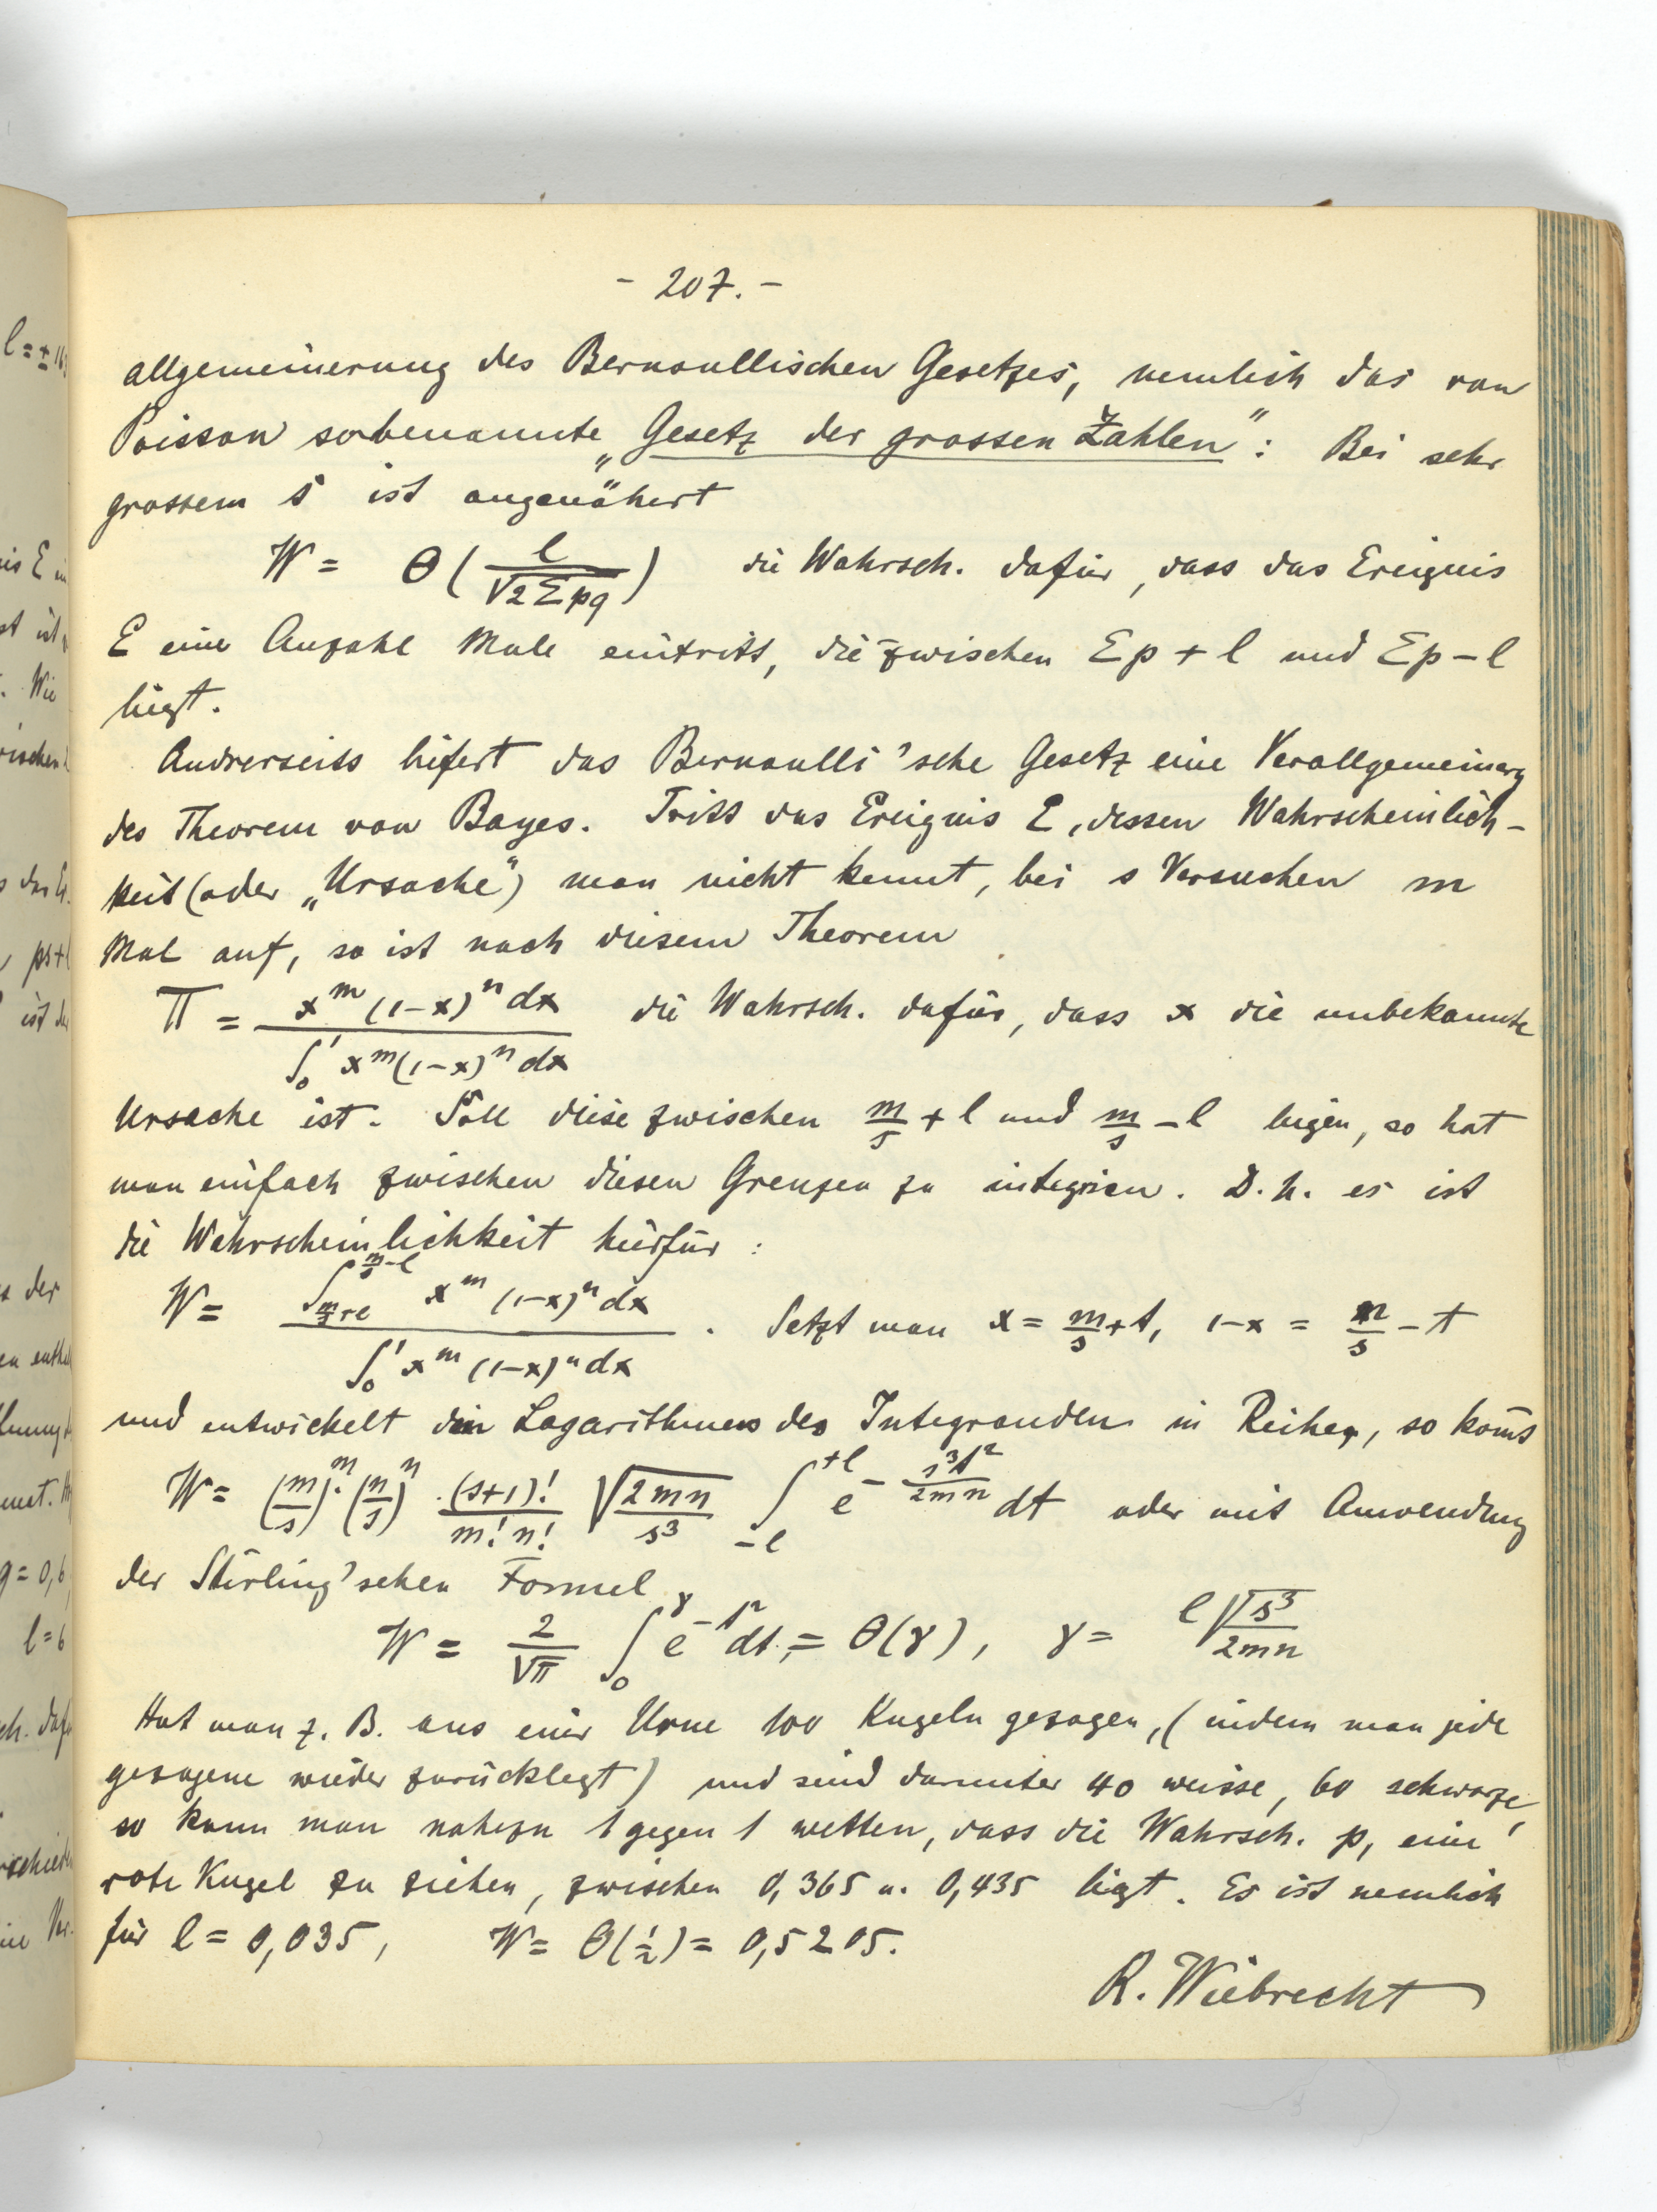 - 207. -
allgemeinerung des Bernoullischen Gesetzes, nemlich das von
Poisson sobenannte „Gesetz der grossen Zahlen": Bei sehr
grossem s ist angenähert
W = Θ(l/√2Σpq) die Wahrsch. dafür, dass das Ereignis
E eine Anzahl Male eintritt, die zwischen Σp + l und Σp - l
liegt.
Andrerseits liefert das Bernoulli'sche Gesetz eine Verallgemeinerg
des Theorem von Bayes. Tritt das Ereignis E, dessen Wahrscheinlich-
keit (oder „Ursache") man nicht kennt, bei s Versuchen m
Mal auf, so ist nach diesem Theorem
Π = x^m (1-x)^n dx / ∫₀¹ x^m (1-x)^n dx die Wahrsch. dafür, dass x die unbekannte
Ursache ist. Soll diese zwischen m/s + l und m/s - l liegen, so hat
man einfach zwischen diesen Grenzen zu integrieren. D.h. es ist
die Wahrscheinlichkeit hierfür:
W = ∫_{m/s+l}^{m/s-l} x^m (1-x)^n dx / ∫₀¹ x^m (1-x)^n dx. Setzt man x = m/s + t, 1-x = n/s - t
und entwickelt den Logarithmus des Integranden in Reihen, so komt
W = (m/s)^m · (n/s)^n · (s+1)!/m!n! √2mn/s³ ∫_{-l}^{+l} e^{-s³t²/2mn} dt oder mit Anwendung
der Stirling'schen Formel
W = 2/√π ∫₀^γ e^{-t²} dt = Θ(γ), γ = l√s³/2mn
Hat man z. B. aus einer Urne 100 Kugeln gezogen, (indem man jede
gezogene wieder zurücklegt) und sind darunter 40 weisse, 60 schwarze,
so kann man nahezu 1 gegen 1 wetten, dass die Wahrsch. p, eine
rote Kugel zu ziehen, zwischen 0,365 u. 0,435 liegt. Es ist nemlich
für l = 0,035, W = Θ(½) = 0,5205.
R. Wiebrecht